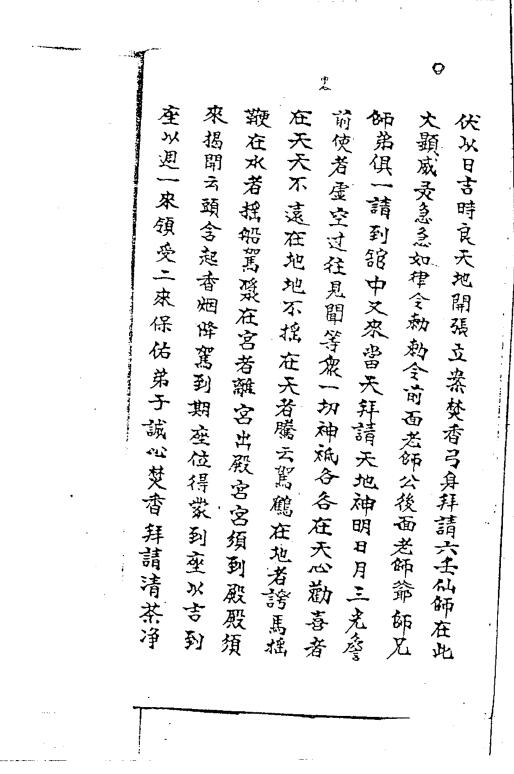 伏以日吉時良天地開張立案焚香弓身拜請六壬仙師在此
大顯威灵急急如律令勅勅令前面老師公後面老師爺師兄
師弟俱一請到舘中又來當天拜請天地神明日月三光詹
前使者虚空过往見聞等衆一切神祇各各在天心勸喜者
在天天不遠在地地不摇在天者騰云駕鶴在地者誇馬摇
鞭在水者摇船駕漿在宮者離宮出殿宮宮須到殿殿須
來揭開云頭含起香烟降駕到期座位得蒙到座以吉到
座以週一來領受二來保佑弟子誠心焚香拜請清茶净